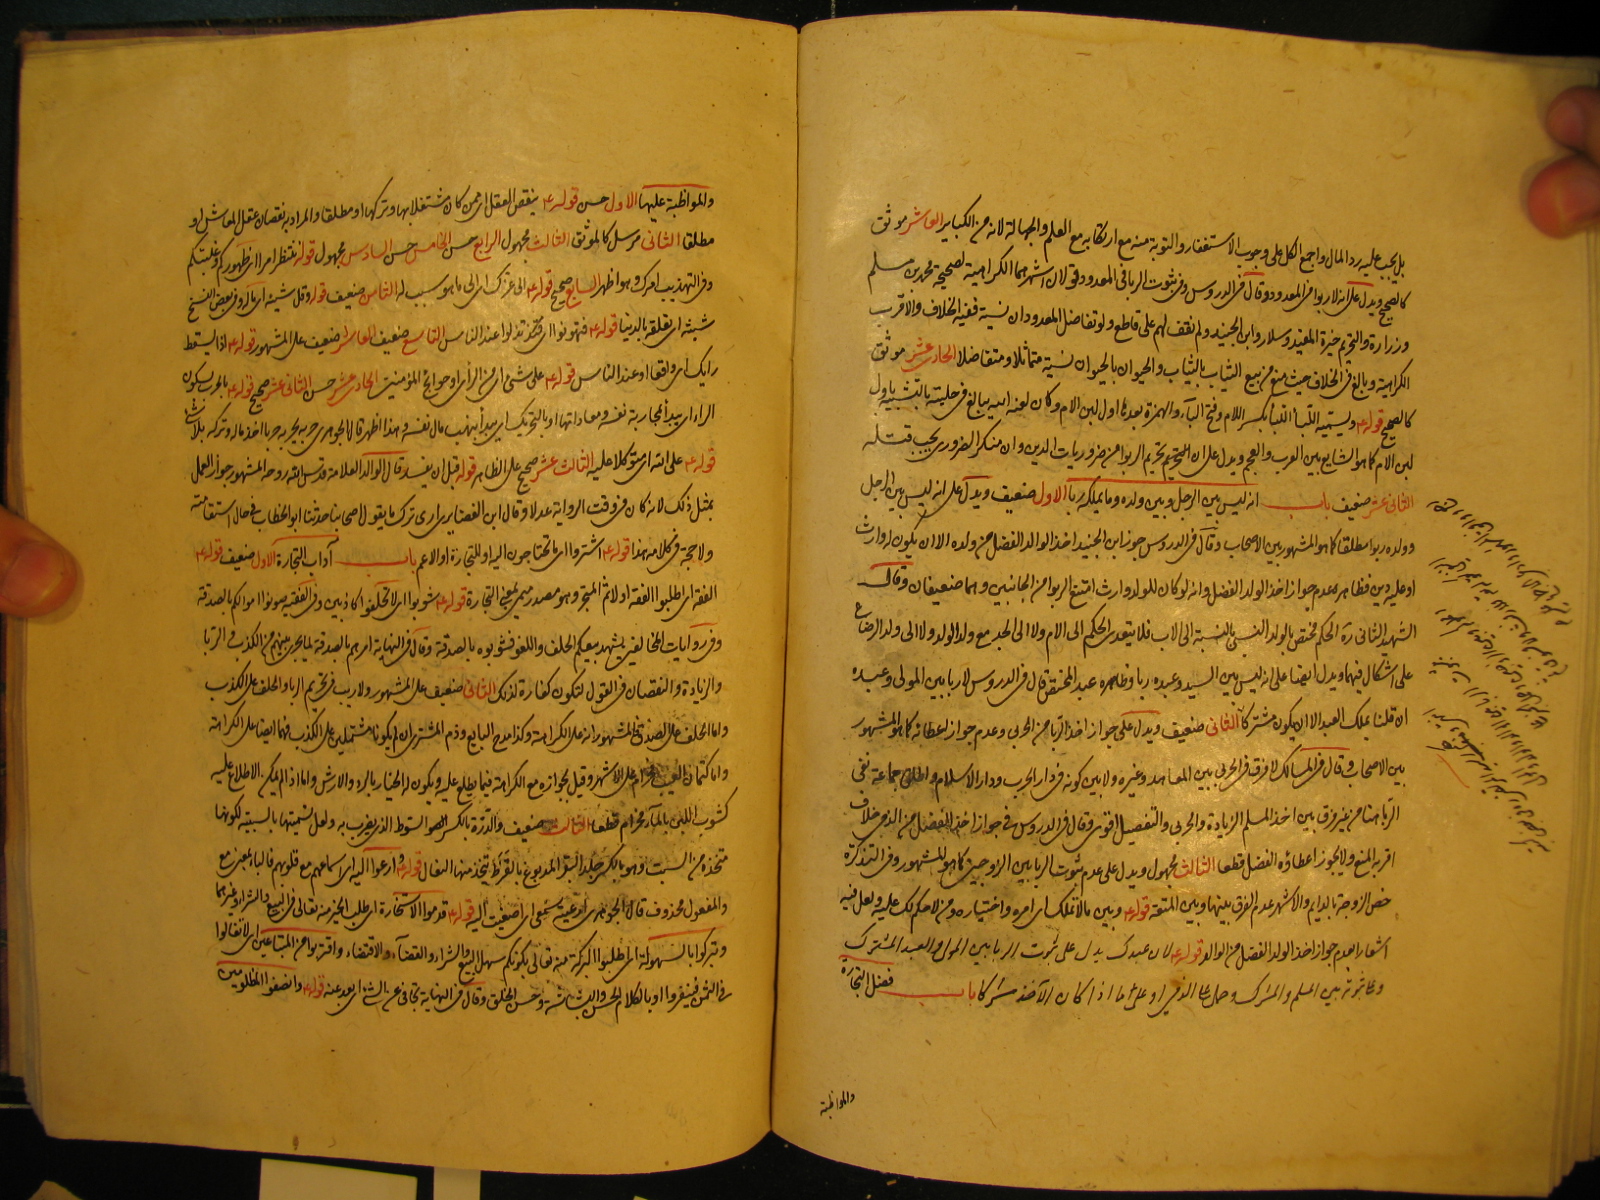 بل يجب عليه رد المال واجمع الكل على وجوب الاستغفار والتوبة منه مع ارتكابه مع العلم والجهالة لانه من الكبائر العاشر موثق
كالصحيح ويدل على انه لا ربوا في المعدود وقال في الدروس وفي ثبوت الربا في المعدود قولان اشهرهما الكراهية لصحيحة محمد بن مسلم
وزرارة والتحريم خيرة المفيد وسلار وابن الجنيد ولم نقف لهم على قاطع ولو تفاضل المعدودان نسية ففيه الخلاف والاقرب
الكراهية وبالغ في الخلاف حيث منع من بيع الثياب بالثياب والحيوان بالحيوان نسية متماثلا ومتفاضلا الحادي عشر موثق
كالصحيح قوله ويسميه اللبأ اللبأ بكسر اللام وفتح الباء والهمزة بعدها اول لبن الام وكان لعنه الله يبالغ في حليته بالتشبيه باول
لبن الام كما هو الشايع بين العرب والعجم ويدل على ان التحريم تحريم الربوا من ضروريات الدين وان منكر الضروري يجب قتله
الثاني عشر ضعيف باب انه ليس بين الرجل وبين ولده وما يملكه ربا الاول ضعيف ويدل على انه ليس بين الرجل
وولده ربوا مطلقا كما هو المشهور بين الاصحاب وقال في الدروس جوز ابن الجنيد اخذ الوالد الفضل من ولده الا ان يكون له وارث
او عليه دين فظاهره عدم جواز اخذ الولد الفضل وانه لو كان للولد وارث امتنع الربوا من الجانبين وهما ضعيفان وقال
الشهيد الثاني ره الحكم مختص بالولد النسبي بالنسبة الى الاب فلا يتعدى الحكم الى الام ولا الى الجد مع ولد الولد ولا الى ولد الرضاع
على اشكال فيهما ويدل ايضا على انه ليس بين السيد وعبده ربا وظاهره عبد المختص قال في الدروس لا ربا بين المولى وعبده
ان قلنا بملك العبد الا ان يكون مشتركا الثاني ضعيف ويدل على جواز اخذ الربا من الحربي وعدم جواز اعطائه كما هو المشهور
بين الاصحاب وقال في المسالك لا فرق في الحربي بين المعاهد وغيره ولا بين كونه في دار الحرب ودار الاسلام واطلق جماعة نفي
الربا هنا من غير فرق بين اخذ المسلم الزيادة والحربي والتفصيل اقوى وقال في الدروس في جواز اخذ الفضل من الذمي خلاف
اقربه المنع ولا يجوز اعطاؤه الفضل قطعا الثالث مجهول ويدل على عدم ثبوت الربا بين الزوجين كما هو المشهور وفي التذكرة
خص الزوجة بالدايم والاشهر عدم الفرق بينها وبين المتعة قوله وبين ما لا تملك اي امره واختياره ومن لا حكم لك عليه ولعل فيه
اشعارا بعدم جواز اخذ الولد الفضل من الوالد قوله لان عبدك يدل على ثبوت الربا بين المولى والعبد المشترك
وعلى ثبوته بين المسلم والمشرك وحمل على الذمي او على ما اذا كان الآخذ مشركا باب فضل التجارة
والمواظبة
والمواظبة عليها الاول حسن قوله ينقص العقل اي ممن كان مشتغلا بها وتركها او مطلقا والمراد به نقصان عقل المعاش او
مطلقا الثاني مرسل كالموثق الثالث مجهول الرابع حسن الخامس حسن السادس مجهول قوله ننتظر امرا اي ظهوركم وغلبتكم
وفي التهذيب امرك وهو اظهر السابع صحيح قوله الى عزك اي الى ما هو سبب له الثامن ضعيف قوله وقل شيئه اي ماله وفي بعض النسخ
شبثه اي تعلقه بالدنيا قوله فتهونوا اي فتذلوا عند الناس التاسع ضعيف العاشر ضعيف على المشهور قوله اذا يسقط
رايك اي واقعا او عند الناس قوله على شئ اي من الرأي او حوائج المؤمنين الحادي عشر حسن الثاني عشر صحيح قوله بالحرب بسكون
الراء اي يبدأ بمحاربة نفسه ومعاداتها او بالتحريك اي يبدأ بنهب مال نفسه وهذا اظهر قال الجوهري حربه يحربه حربا اخذ ماله وتركه بلا شئ
قوله على الله اي متوكلا عليه الثالث عشر صحيح على الظاهر قوله قبل ان يفسد قال الوالد العلامة قدس الله روحه المشهور جواز العمل
بمثل ذلك لانه كان في وقت الرواية عدلا وقال ابن الغضائري ارى ترك ما يقول اصحابنا حدثنا ابو الخطاب في حال استقامته
ولا حجة في كلامه هذا قوله اشتروا اي ما تحتاجون اليه او للتجارة او الاعم باب آداب التجارة الاول ضعيف قوله
الفقه اي اطلبوا الفقه اولا ثم المتجر وهو مصدر ميمي بمعنى التجارة قوله شوبوا اي لا تحلفوا كاذبين وفي الفقيه صونوا اموالكم بالصدقة
وفي روايات المخالفين يشهد بيعكم الحلف واللغو فشوبوه بالصدقة وقال في النهاية امرهم بالصدقة لما يجري بينهم من الكذب في الربا
والزيادة والنقصان في القول لتكون كفارة لذلك الثاني ضعيف على المشهور ولا ريب في تحريم الربا والحلف على الكذب
واما الحلف على الصدق فالمشهور انه على الكراهة وكذا مدح البايع وذم المشتري ان لم يكونا مشتملين على الكذب فهما ايضا على الكراهة
واما كتمان العيب فحرام على الاشهر وقيل بجوازه مع الكراهة فيما يطلع عليه ويكون له الخيار بالرد والارش واما اذا لم يمكن الاطلاع عليه
كشوب اللبن بالماء فحرام قطعا الثالث ضعيف والدرة بالكسر هو السوط الذي يضرب به ولعل تسميتها بالسبتية لكونها
متخذة من السبت وهو بالكسر جلد البقر المدبوغ بالقرظ يتخذ منها النعال قوله وارعوا اليه اي اسماعهم مع قلوبهم فالباء بمعنى مع
والمفعول محذوف قال الجوهري ارعيته سمعي اي اصغيت اليه قوله قدموا الاستخارة اي طلب الخير منه تعالى في البيع والشراء وغيرهما
وتبركوا بالسهولة اي اطلبوا البركة منه تعالى بكونكم سهل البيع والشراء والقضاء والاقتضاء واقتربوا من المبتاعين اي لا تغالوا
في الثمن فينفروا او بالكلام الحسن والبشاشة وحسن الخلق وقال في النهاية تجافى عن الشئ اي بعد عنه قوله وانصفوا المظلومين